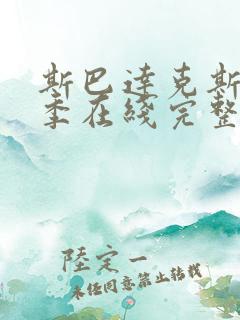 斯巴達克斯
季在綫完整
陸定一
未經同意禁止轉載